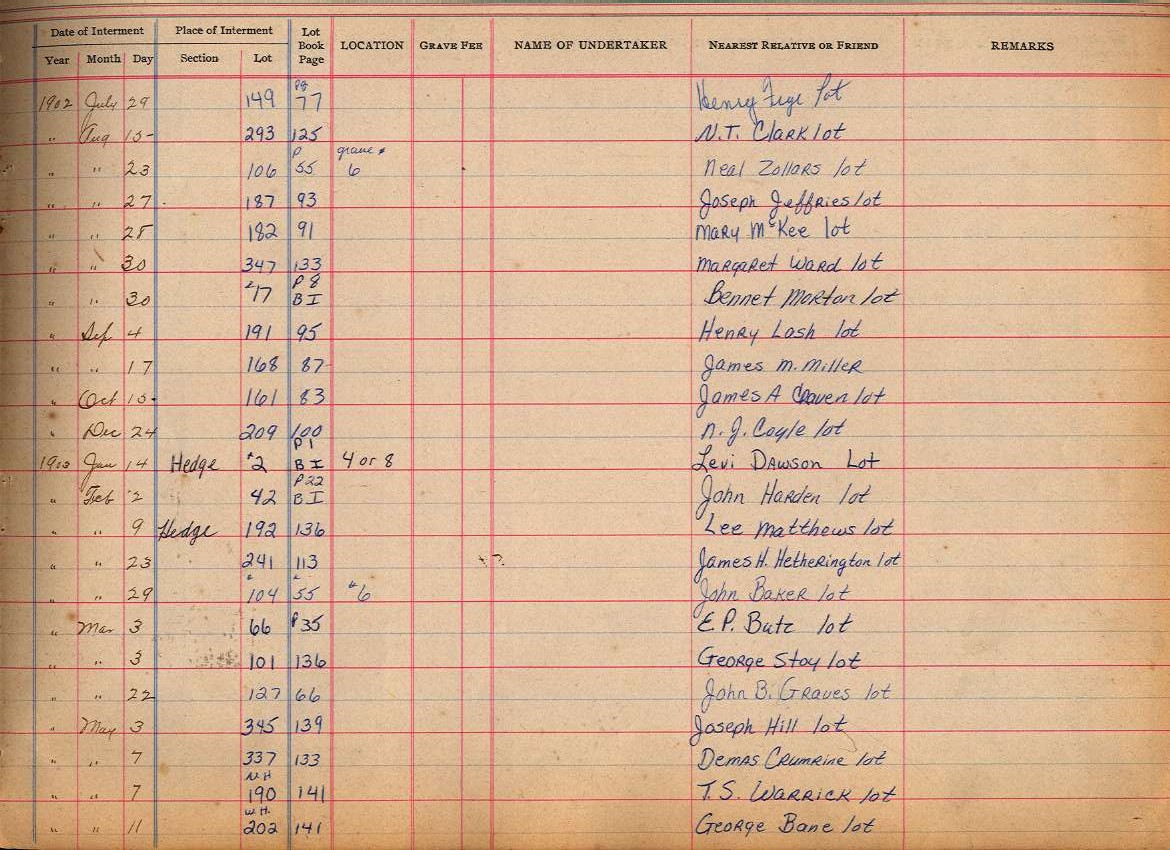 Date of Interment Place of Interment Lot Book Page LOCATION GRAVE FEE NAME OF UNDERTAKER NEAREST RELATIVE OR FRIEND REMARKS
Year Month Day Section Lot
1902 July 29 149 Pg 77 Henry Fege lot
" Aug 15- 293 125 N.T. Clark lot
" " 23 106 P 55 grave # 6 Neal Zollars lot
" " 27 187 93 Joseph Jeffries lot
" " 28 182 91 Mary McKee lot
" " 30 347 133 Margaret Ward lot
" " 30 "17 P 8 B I Bennet Morton lot
" Sep 4 191 95 Henry Lash lot
" " 17 168 87 James M. Miller
" Oct 15- 161 83 James A Craven lot
" Dec 24 209 100 N. J. Coyle lot
1903 Jan 14 Hedge "2 P 1 B I 4 or 8 Levi Dawson Lot
" Feb 2 42 P 22 B I John Harden lot
" " 9 Hedge 192 136 Lee Matthews lot
" " 23 241 113 James H. Hetherington lot
" " 29 "104 "55 "6 John Baker lot
" Mar 3 66 P 35 E.P. Butz lot
" " 3 101 136 George Stoy lot
" " 22 127 66 John B. Graves lot
" May 3 345 139 Joseph Hill lot
" " 7 337 133 Demas Crumrine lot
" " 7 N H 190 141 T.S. Warrick lot
" " 11 W. H. 202 141 George Bane lot